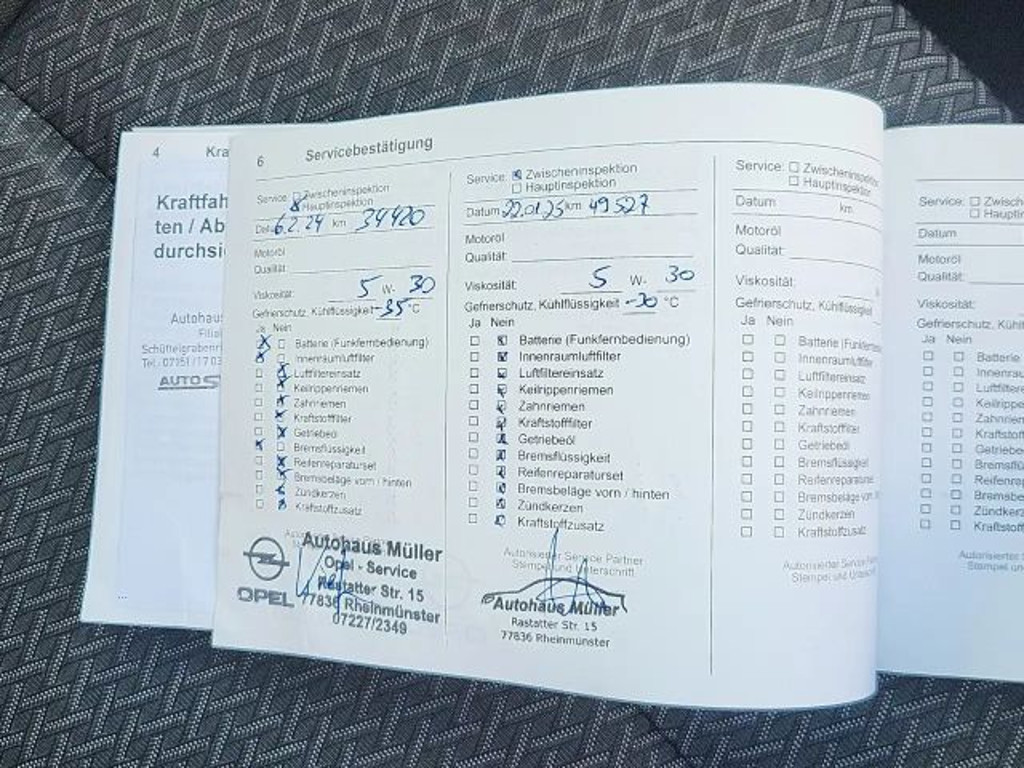 4 Kra
Kraftfah
ten / Ab
durchsi
Autohaus
Filial
Schüttelgrabenr
AUTO
6 Servicebestätigung
Service: Zwischeninspektion
Hauptinspektion
6.2.24 km 34420
Motoröl
Qualität:
Viskosität: 5 W- 30
Gefrierschutz, Kühlflüssigkeit -35 °C
Ja Nein
Batterie (Funkfernbedienung)
Innenraumluftfilter
Luftfiltereinsatz
Keilrippenriemen
Zahnriemen
Kraftstofffilter
Getriebeöl
Bremsflüssigkeit
Reifenreparaturset
Bremsbeläge vorn / hinten
Zündkerzen
Kraftstoffzusatz
OPEL
Autohaus Müller
Opel - Service
Rastatter Str. 15
77836 Rheinmünster
07227/2349
Service: Zwischeninspektion
Hauptinspektion
Datum 22.01.25 km 49527
Motoröl
Qualität:
Viskosität: 5 W- 30
Gefrierschutz, Kühlflüssigkeit -30 °C
Ja Nein
Batterie (Funkfernbedienung)
Innenraumluftfilter
Luftfiltereinsatz
Keilrippenriemen
Zahnriemen
Kraftstofffilter
Getriebeöl
Bremsflüssigkeit
Reifenreparaturset
Bremsbeläge vorn / hinten
Zündkerzen
Kraftstoffzusatz
Autorisierter Service Partner
Stempel und Unterschrift
Autohaus Müller
Rastatter Str. 15
77836 Rheinmünster
Service: Zwischeninspektion
Hauptinspektion
Datum km
Motoröl
Qualität:
Viskosität:
Gefrierschutz, Kühlflüssigkeit
Ja Nein
Batterie (Funkfernbe
Innenraumluftfilter
Luftfiltereinsatz
Keilrippenriemen
Zahnriemen
Kraftstofffilter
Getriebeöl
Bremsflüssigkeit
Reifenreparaturset
Bremsbeläge vorn
Zündkerzen
Kraftstoffzusatz
Autorisierter Service
Stempel und
Service: Zwisch
Hauptin
Datum
Motoröl
Qualität:
Viskosität:
Gefrierschutz, Kühlflü
Ja Nein
Batterie
Innenrau
Luftfilter
Keilrippe
Zahnrie
Kraftstof
Getriebe
Bremsflü
Reifenre
Bremsbe
Zündker
Kraftstoff
Autorisierter S
Stempel un